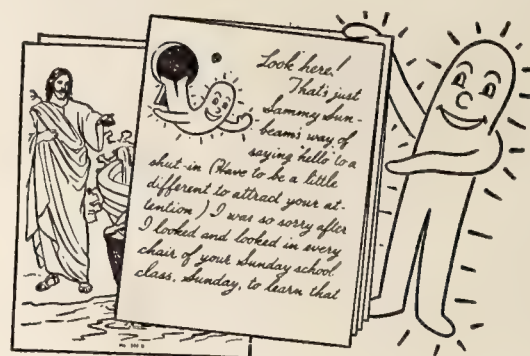 Look here!
That's just
Sammy Sun-
beam's way of
saying "hello" to a
shut-in (Have to be a little
different to attract your at-
tention) I was so sorry after
I looked and looked in every
chair of your Sunday school
class, Sunday, to learn that